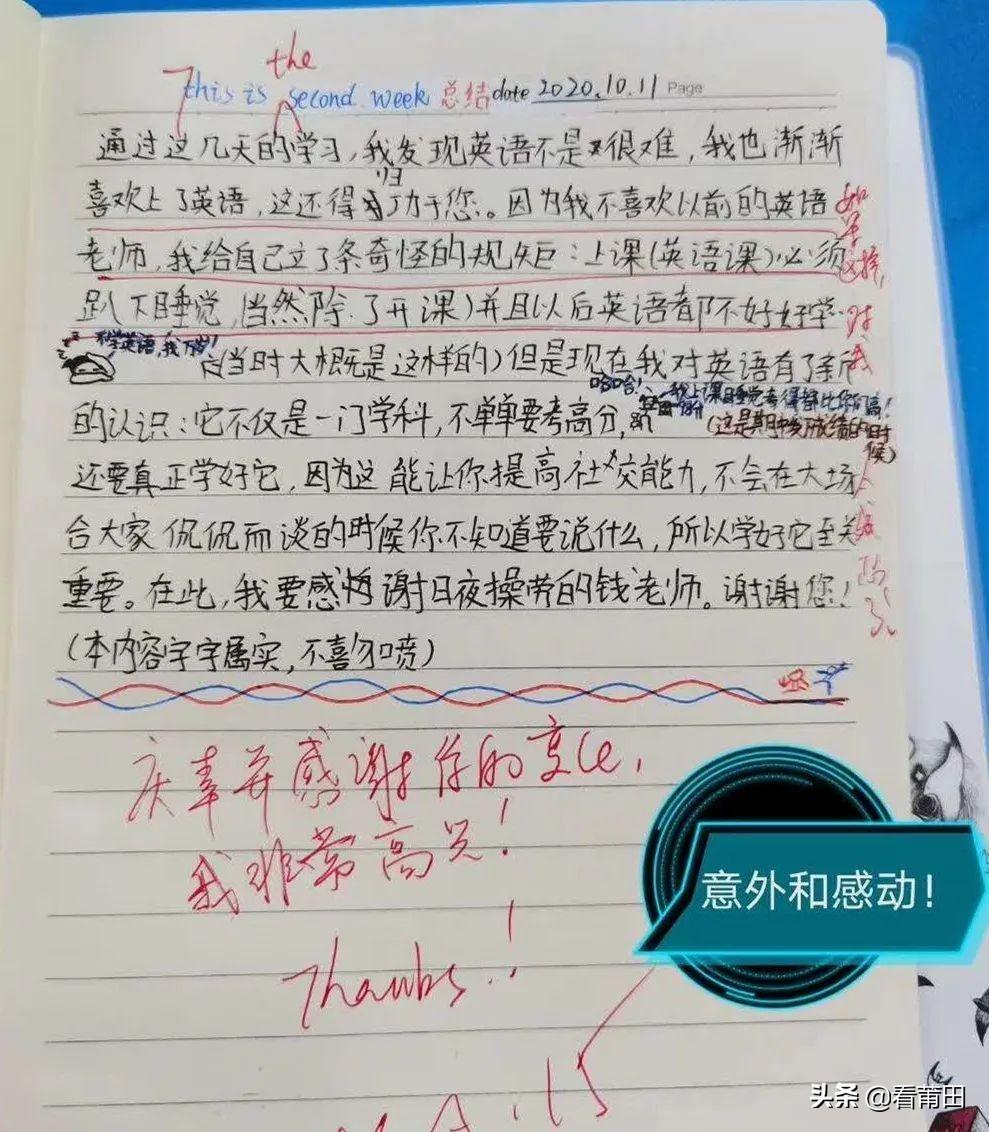 the
This is second week 总结 date 2020.10.11 Page
通过这几天的学习,我发现英语不是很难,我也渐渐
喜欢上了英语,这还得归功于您。因为我不喜欢以前的英语
老师,我给自己立了条奇怪的规矩:上课(英语课)必须
趴下睡觉,(当然除了开课)并且以后英语都不好好学
不学英语,我万岁!
(当时大概是这样的)但是现在我对英语有了新
哈哈!
我上课睡觉考得都比你们高!
的认识:它不仅是一门学科,不单单要考高分,
(这是期中考成绩的时候)
还要真正学好它,因为这能让你提高社交能力,不会在大场
合大家侃侃而谈的时候你不知道要说什么,所以学好它至关
重要。在此,我要感谢日夜操劳的钱老师。谢谢您!
(本内容字字属实,不喜勿喷)
如果这样,对我
庆幸并感谢你的变化,
我非常高兴!
Thanks!
意外和感动!
头条 @看莆田